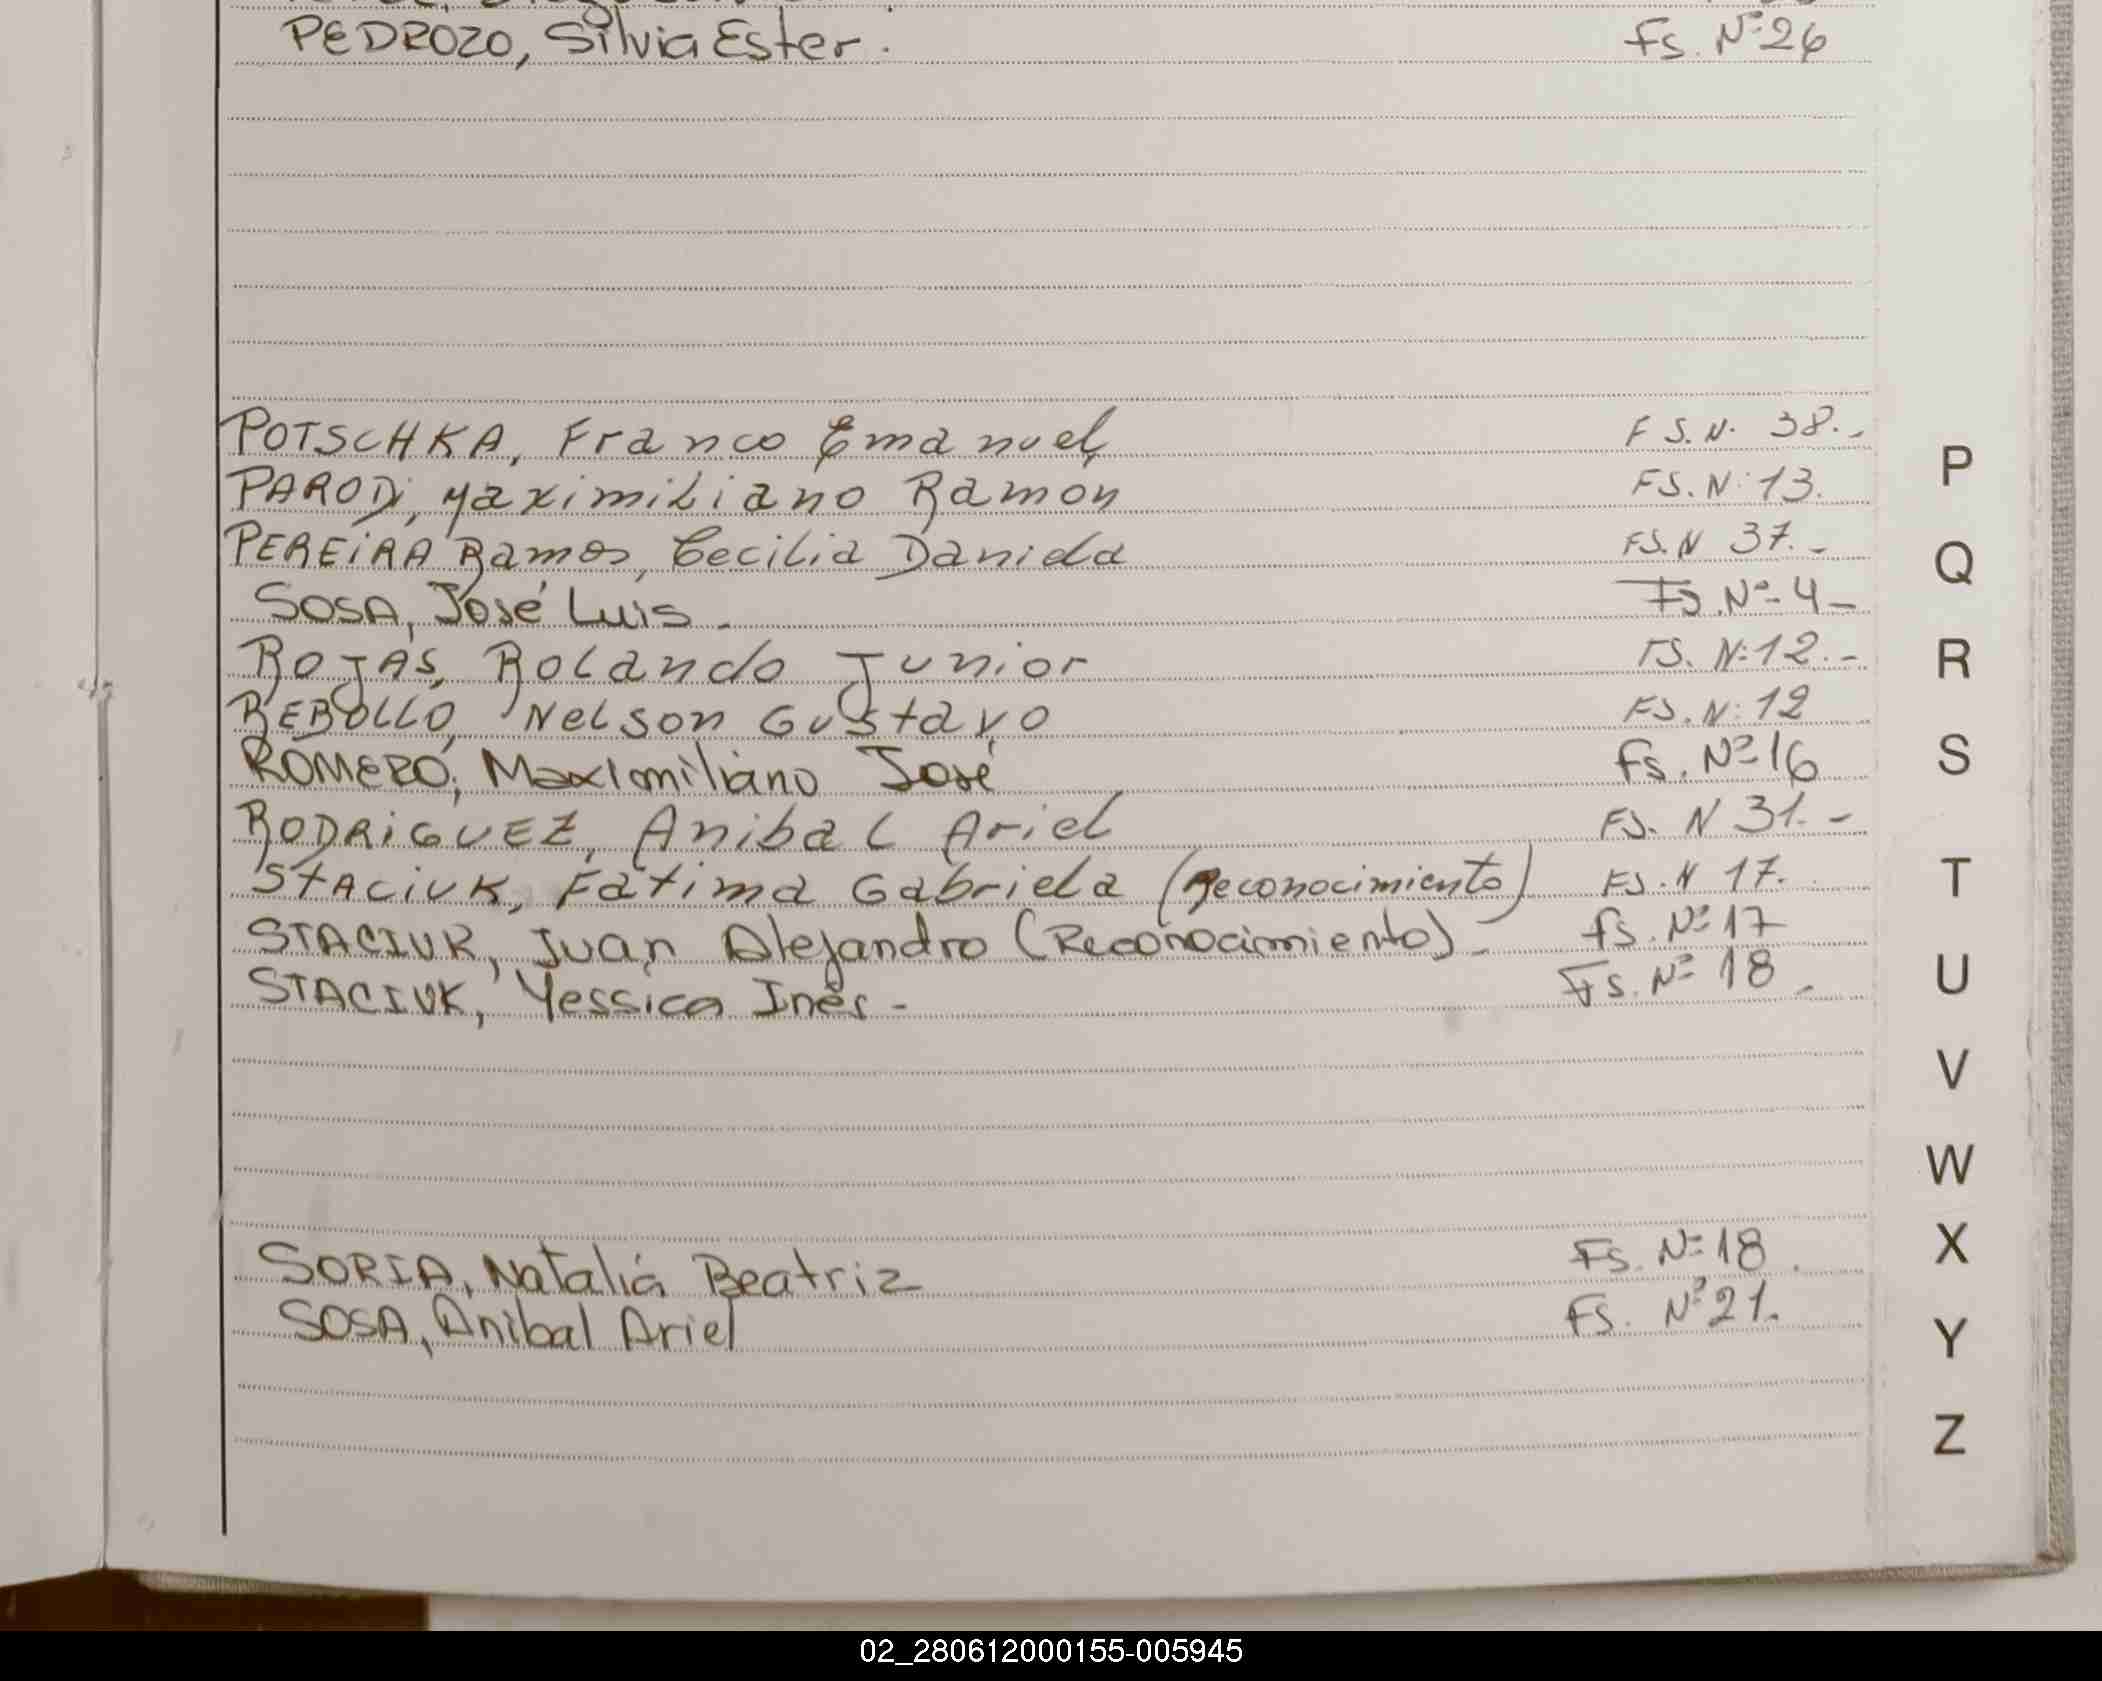 PEDROZO, Silvia Ester. Fs. Nº 26
POTSCHKA, Franco Emanuel, F S. N. 38.-
PARODi, Maximiliano Ramon FS. N: 13.
PEREiRA Ramos, Cecilia Daniela FS. N 37.-
SOSA, José Luis - Fs. Nº 4-
ROJAS, Rolando Junior FS. N: 12.-
REBOLLO, Nelson Gustavo FS. N: 12
ROMERO, Maximiliano José Fs. Nº 16
RODRiGUEZ, Anibal Ariel FS. N 31.-
STACiUK, Fatima Gabriela (Reconocimiento) FS. N 17.
STACIUK, Juan Alejandro (Reconocimiento) - Fs. Nº 17
STACIUK, Yessica Inés - Fs. Nº 18.
SORIA, Natalia Beatriz Fs. Nº 18.
SOSA, Anibal Ariel Fs. Nº 21.
P
Q
R
S
T
U
V
W
X
Y
Z
02_280612000155-005945